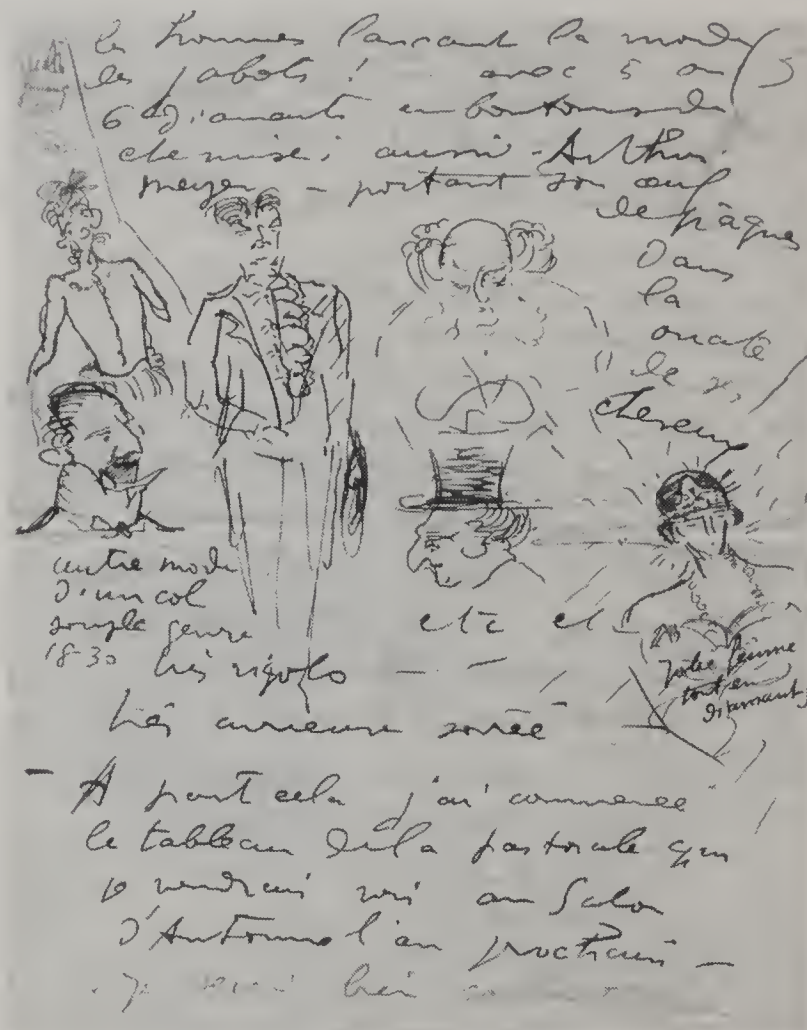 les hommes lançant la mode
les jabots ! avec 5 ou
6 diamants en boutons de
chemise, aussi Arthur
meyer – portant son œuf
de pâques
dans
la
ouate
de
cheveux
autre mode
d'un col
souple genre
18-30
très rigolo
etc etc
jolie femme
tout en
diamants
très curieuse soirée
– A part cela j'ai commencé
le tableau de la pastorale que
je voudrais voir au Salon
d'Automne l'an prochain –
bien